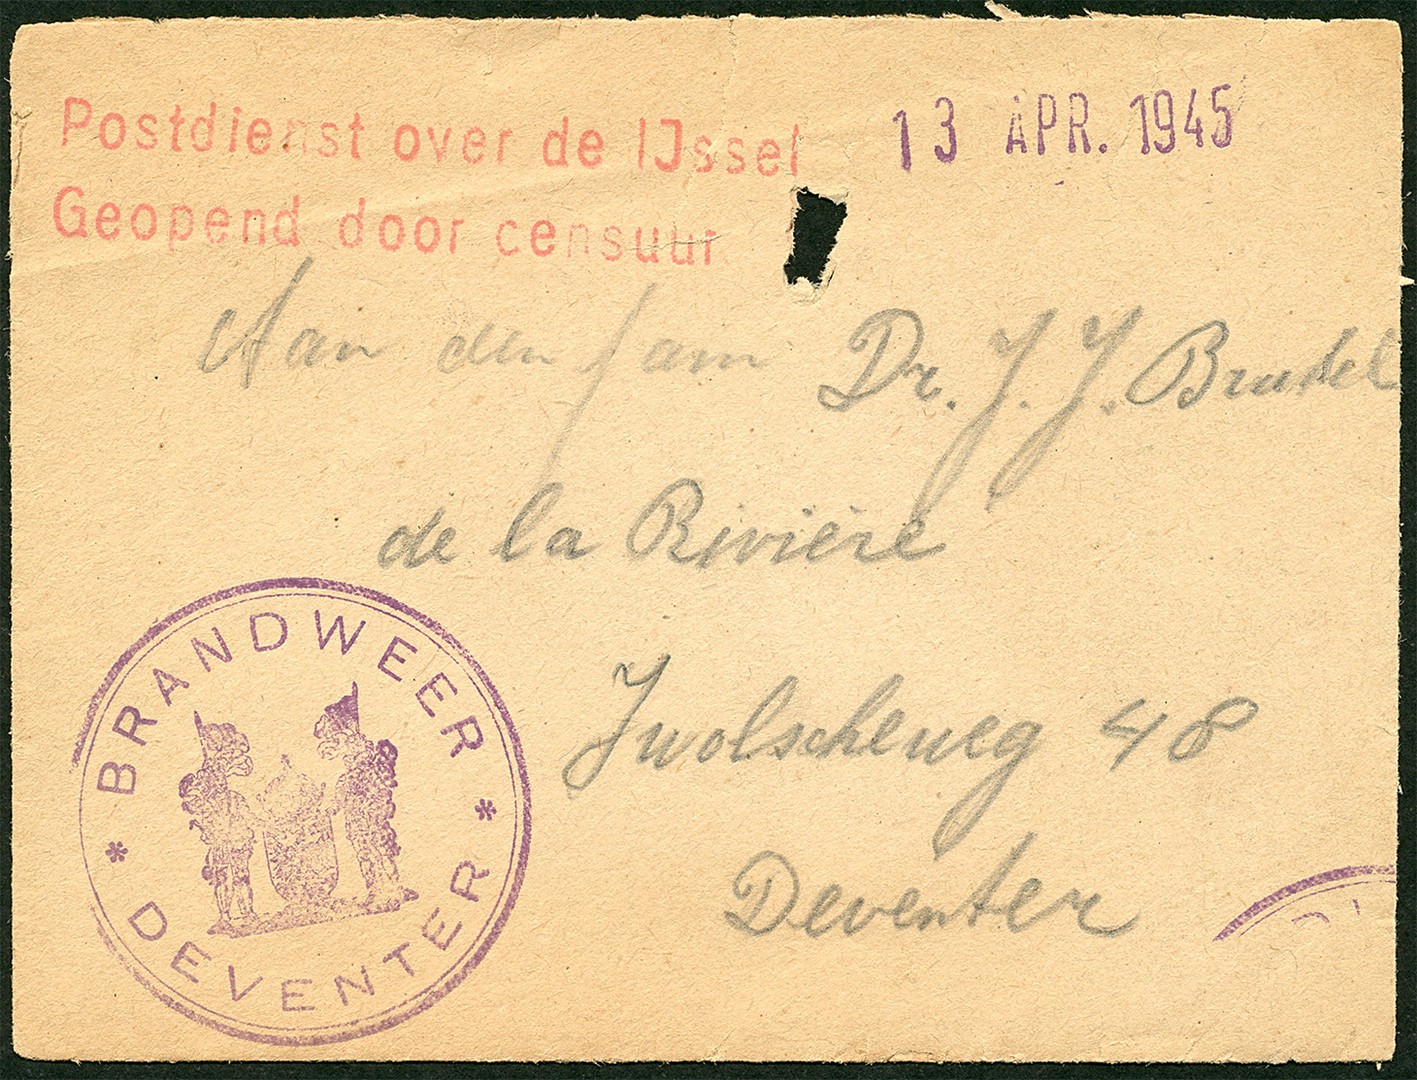 Postdienst over de IJssel
13 APR. 1945
Geopend door censuur
Aan den fam Dr. J. J. Brudel
de la Rivière
Zwolscheweg 48
Deventer
* BRANDWEER *
DEVENTER